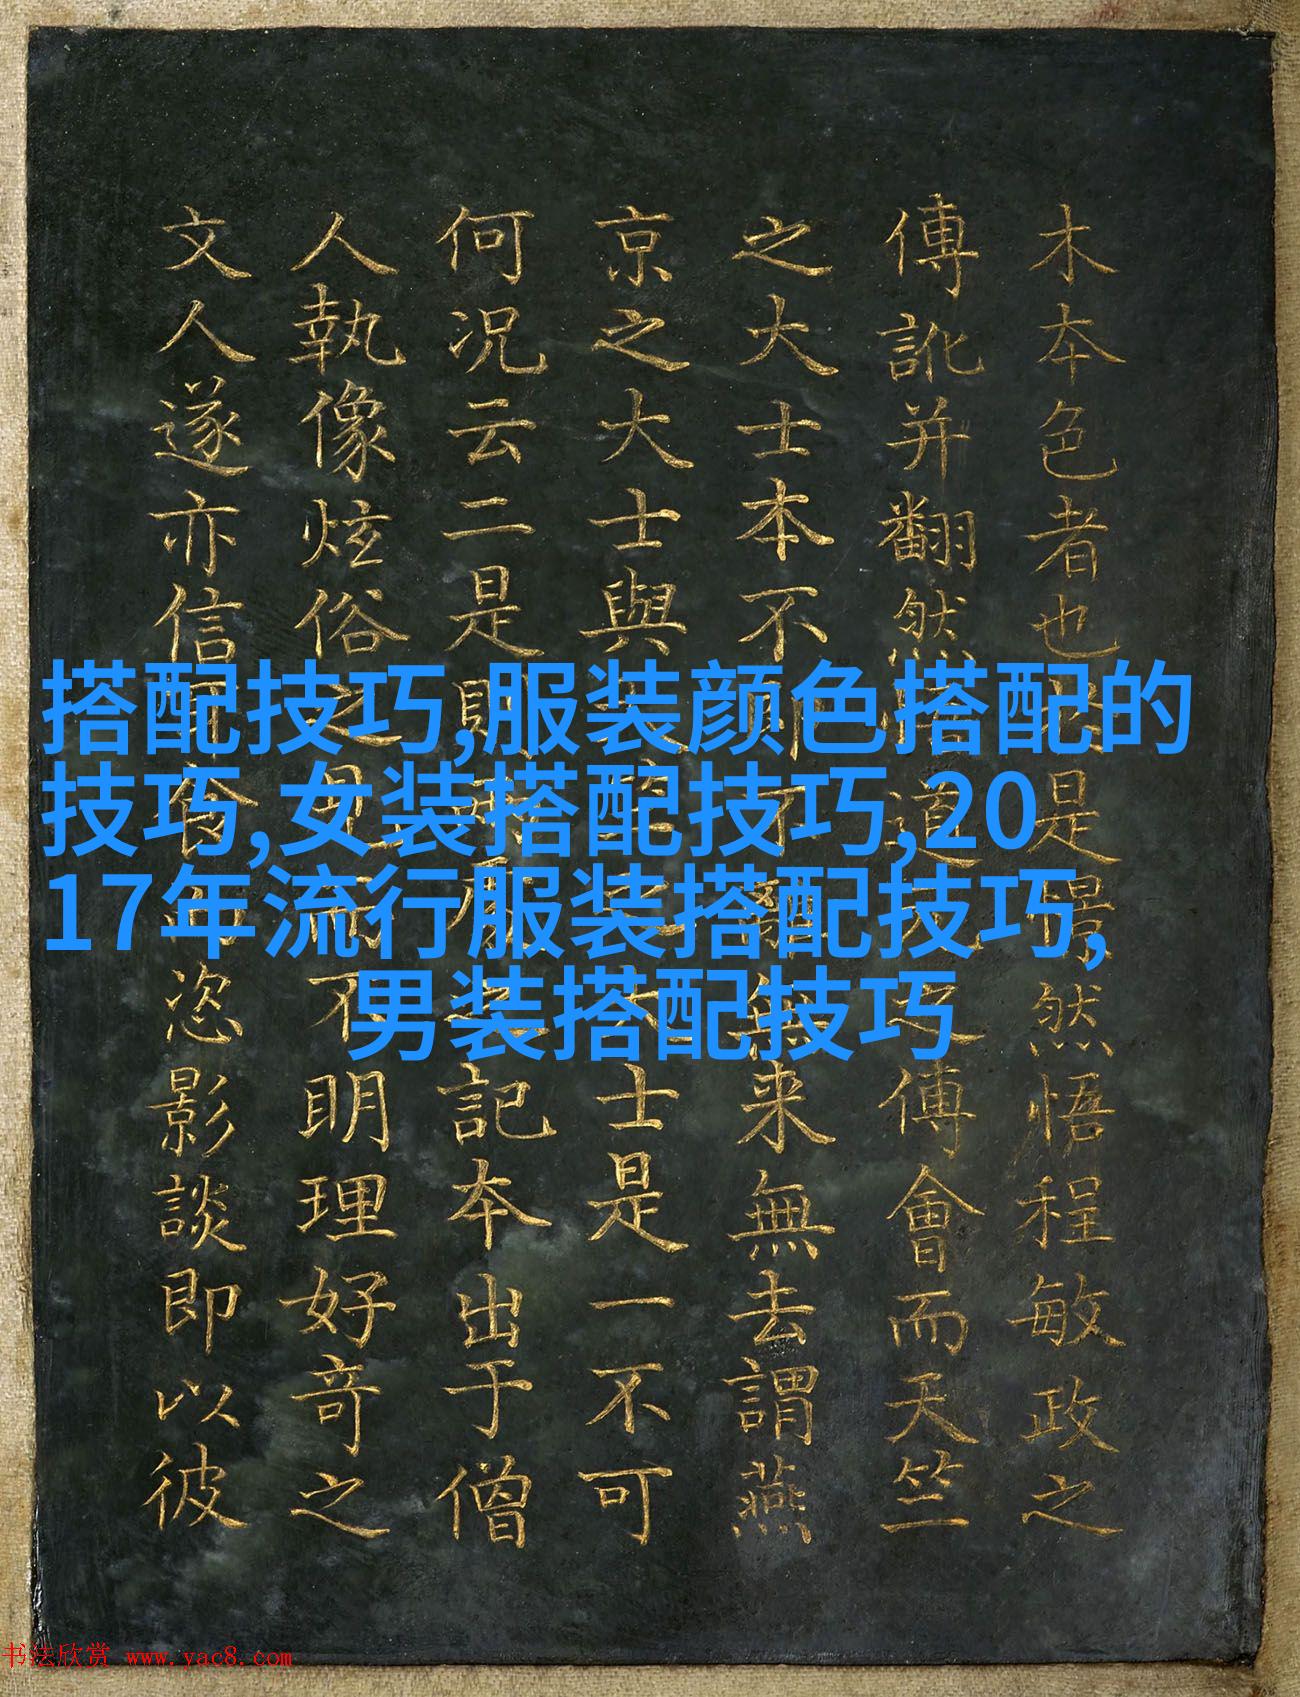 木本色者也是然悟程敏政之
傅訛并翻然道之傅會而天竺
之大士本不即無来無去謂燕
京之大士與大士是一不可
何况云二是則記本出于僧
人執像炫俗之不明理好奇之
文人遂亦信恣影談即以彼
搭配技巧,服装颜色搭配的
技巧,女装搭配技巧,20
17年流行服装搭配技巧,
男装搭配技巧
书法欣赏 www.yac8.com